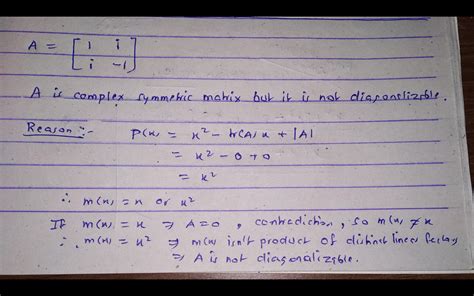 A = [ 1 i
i -1 ]
A is complex symmetric matrix but it is not diagonalizable.
Reason :- P(x) = x² - tr(A) x + |A|
= x² - 0 + 0
= x²
∴ m(x) = x or x²
If m(x) = x ⇒ A = 0 , contradiction , so m(x) ≠ x
∴ m(x) = x² ⇒ m(x) isn't product of distinct linear factors
⇒ A is not diagonalizable.